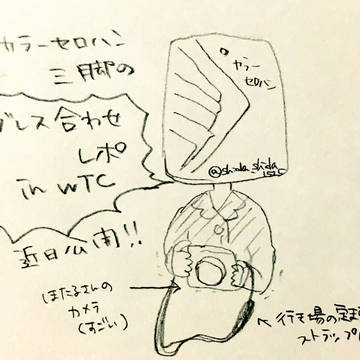 カラーセロハン
三脚の
ブレス合わせ
レポ
in WTC
近日公開!!
カラー
セロハン
ほたるさんの
カメラ
(すごい)
行き場の定ま
ストラップ